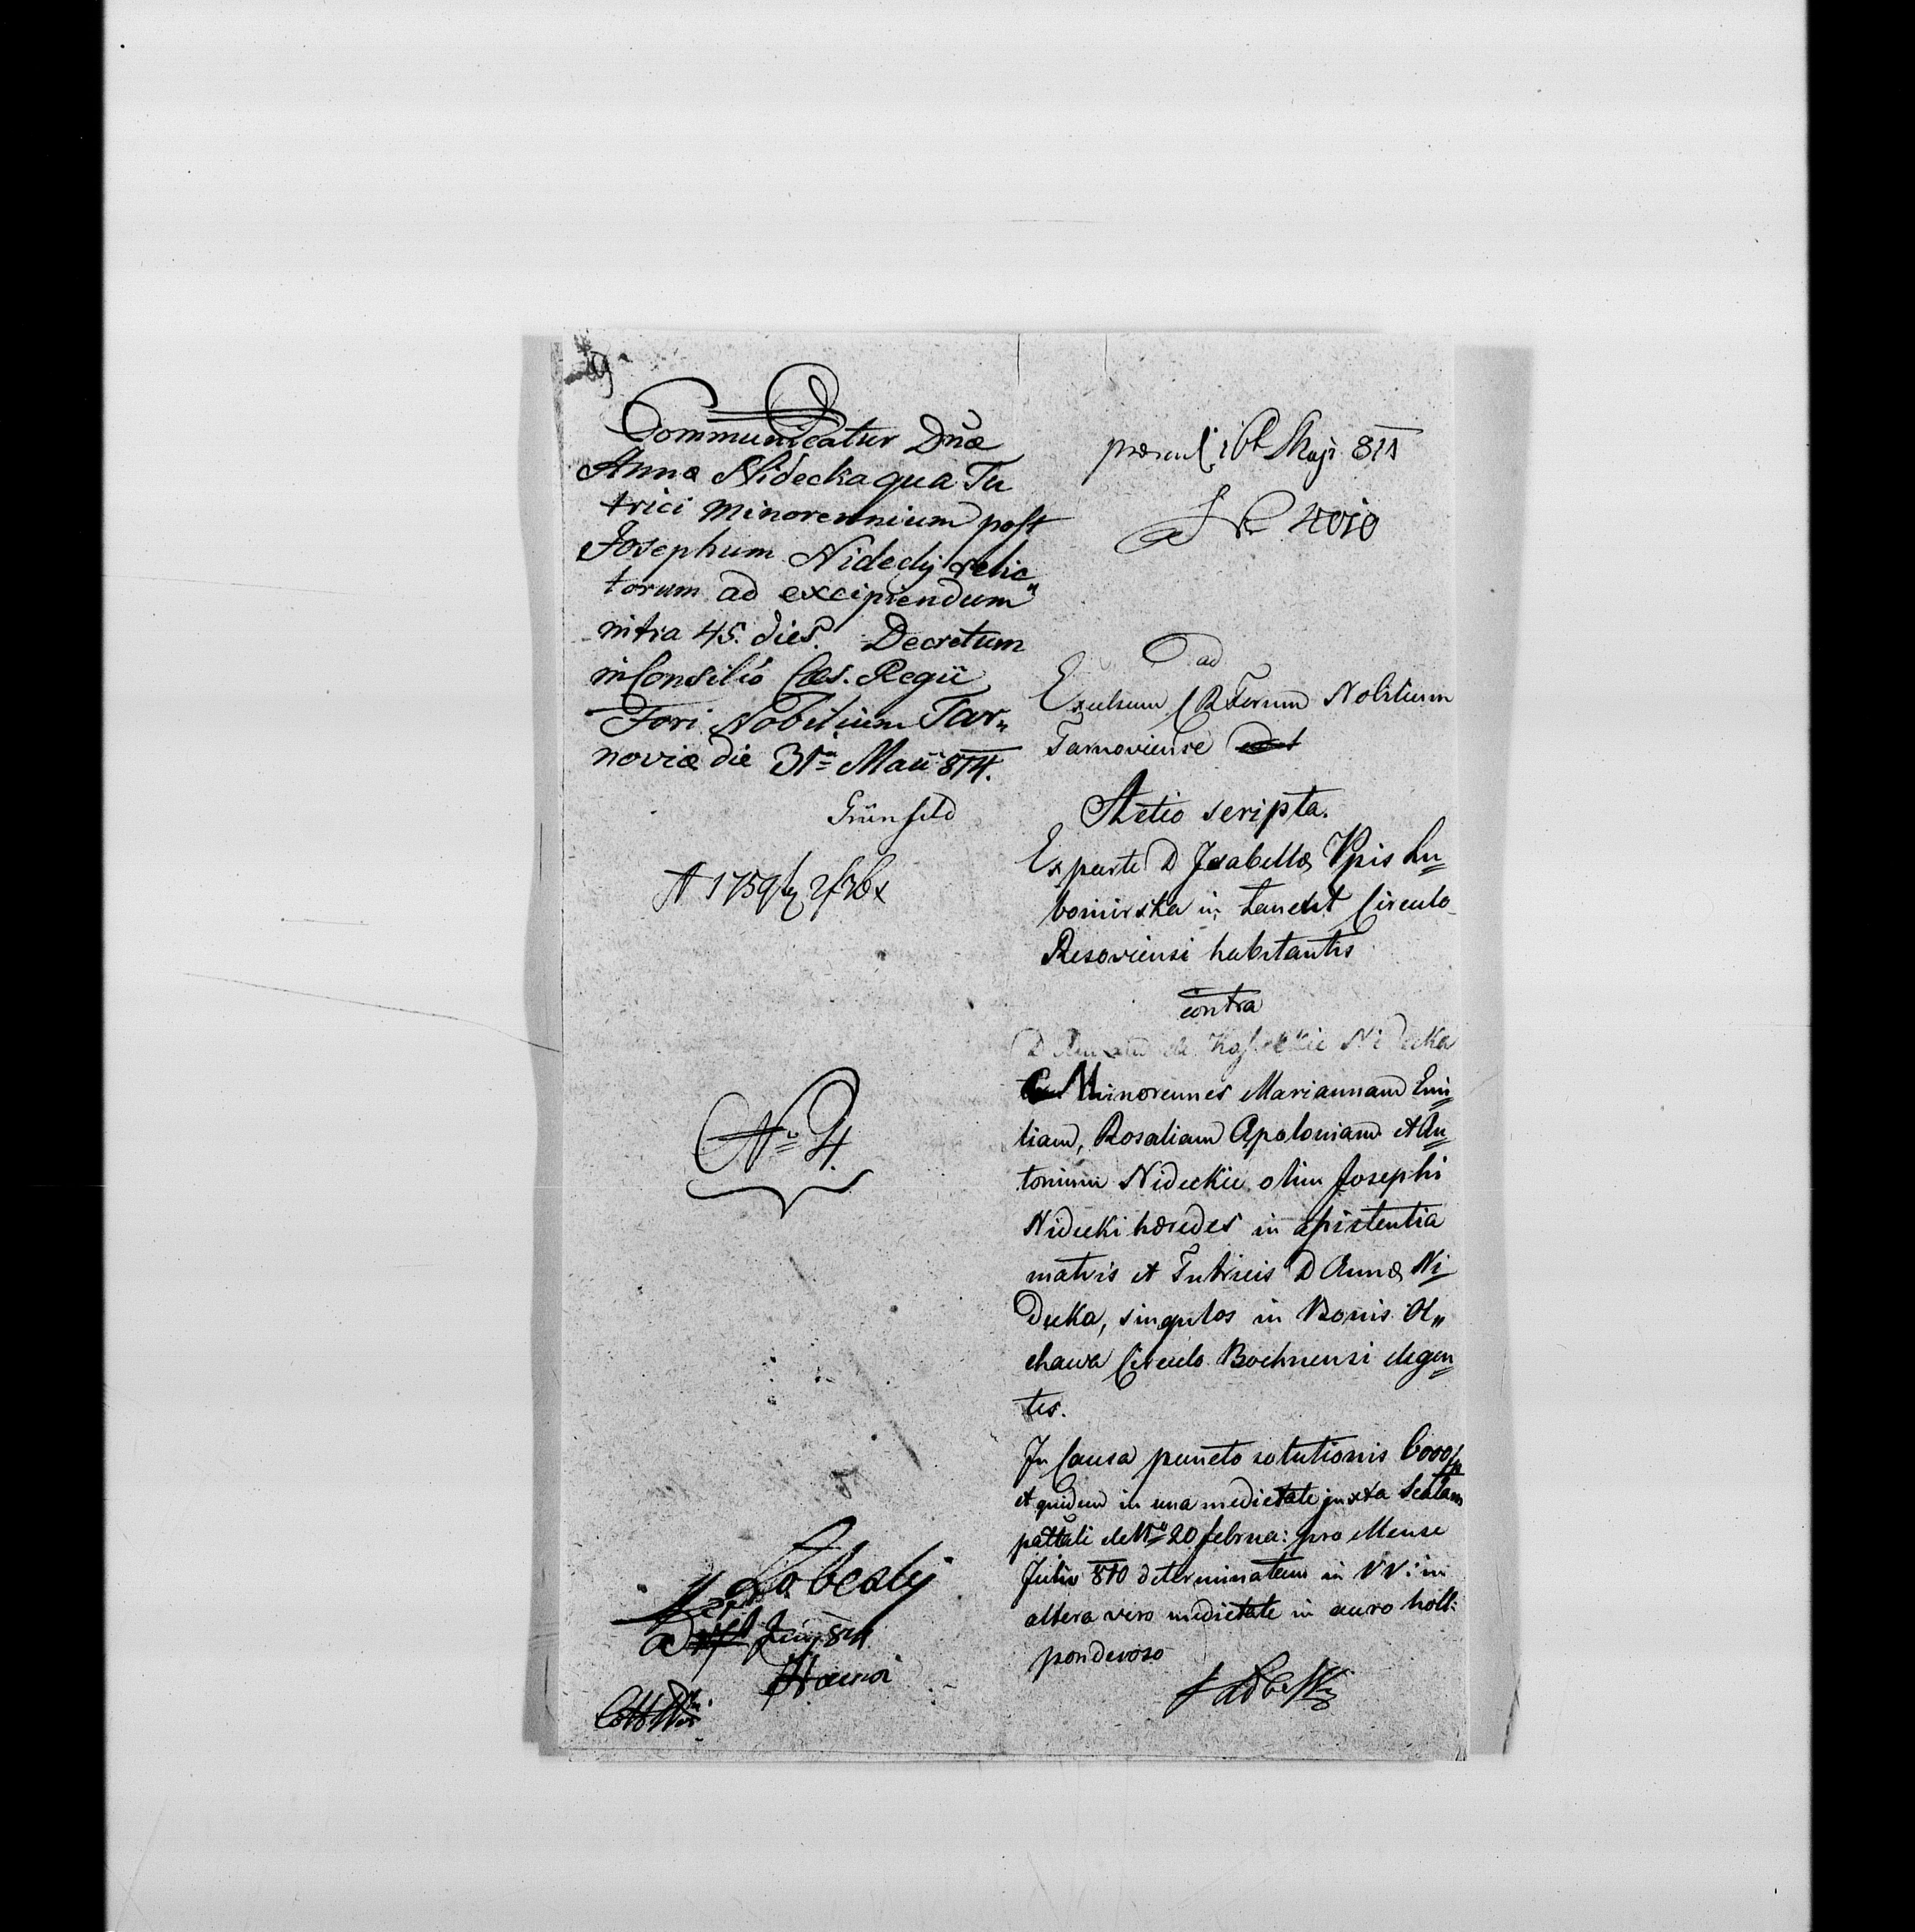 Communicatur Dnae
Annae Nidecka qua Tu
trici minorennium post
Josephum Nidecky relic„
torum ad excipiendum
intra 45. dies. Decretum
in Consilio Caes. Regii
Fori Nobilium Tar„
noviae die 31ª Maii 814.
Grünfeld
No 4.
Juny 814
praes. 16t Maji 814
N 4010
ad
Excelsum C R Forum Nobilium
Tarnoviense
Actio scripta.
Ex parte D Isabellae Ppis Lu=
bomirska in Lancut Circulo
Resoviensi habitantis
contra
Nidecka
Minorennes Mariannam Emi=
liam, Rosaliam Apoloniam et An=
toninum Nideckie olim Josephi
Nidecki haeredes in assistentia
matris et Tutricis D Annae Ni=
decka, singulos in Bonis Ol„
chawa Circulo Bochnensi degen=
tes.
In Causa puncto solutionis 6000
et quidem in una medietate juxta Scalam
patentali de 20 februa: pro Mense
Julio 810 determinatam in VV: in
altera vero medietate in auro holl:
ponderoso